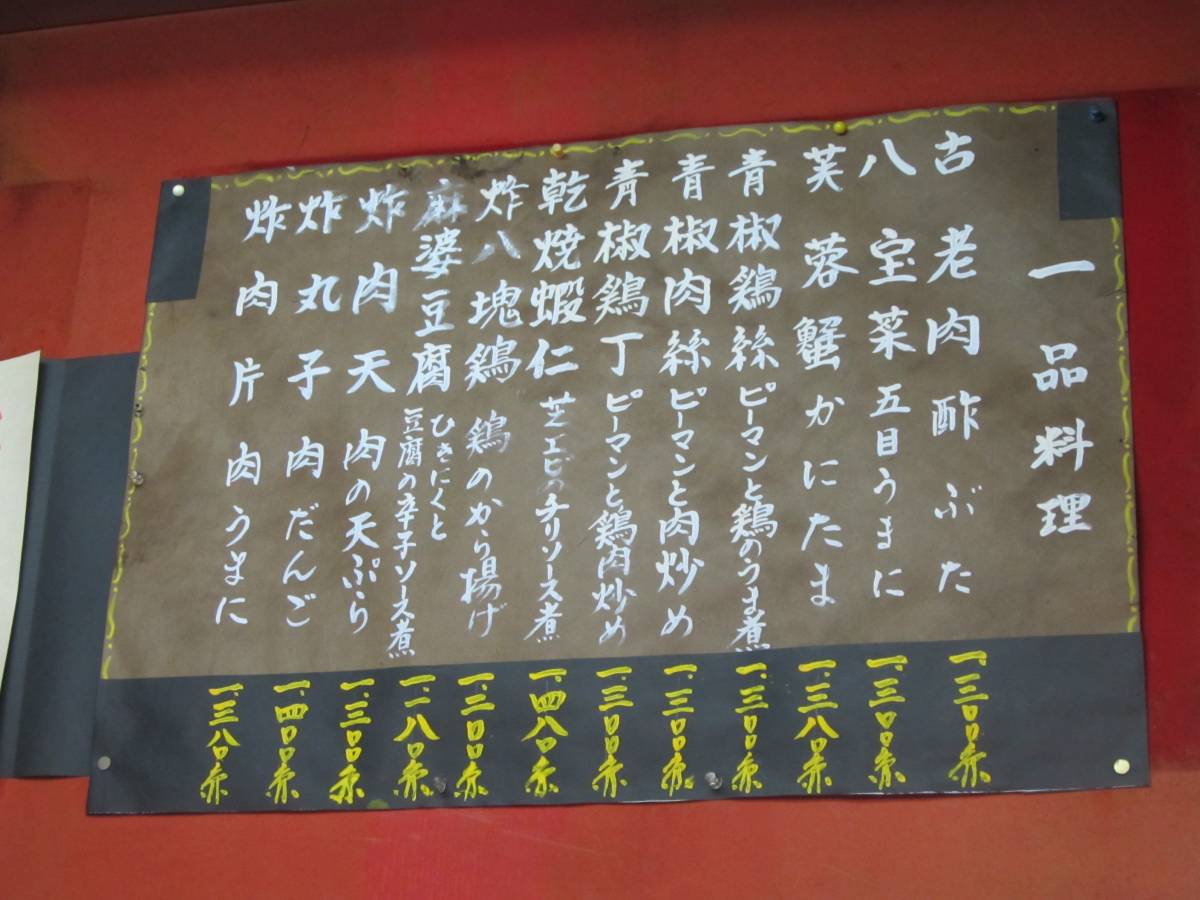 一品料理
古老肉 酢ぶた 一、三〇〇円
八宝菜 五目うまに 一、三〇〇円
芙蓉蟹 かにたま 一、三八〇円
青椒鶏絲 ピーマンと鶏のうま煮 一、三〇〇円
青椒肉絲 ピーマンと肉炒め 一、三〇〇円
青椒鶏丁 ピーマンと鶏肉炒め 一、三〇〇円
乾焼蝦仁 芝エビのチリソース煮 一、四八〇円
炸八塊鶏 鶏のから揚げ 一、三〇〇円
麻婆豆腐 ひきにくと
豆腐の辛子ソース煮 一、一八〇円
炸肉天 肉の天ぷら 一、三〇〇円
炸丸子 肉だんご 一、四〇〇円
炸肉片 肉うまに 一、三八〇円